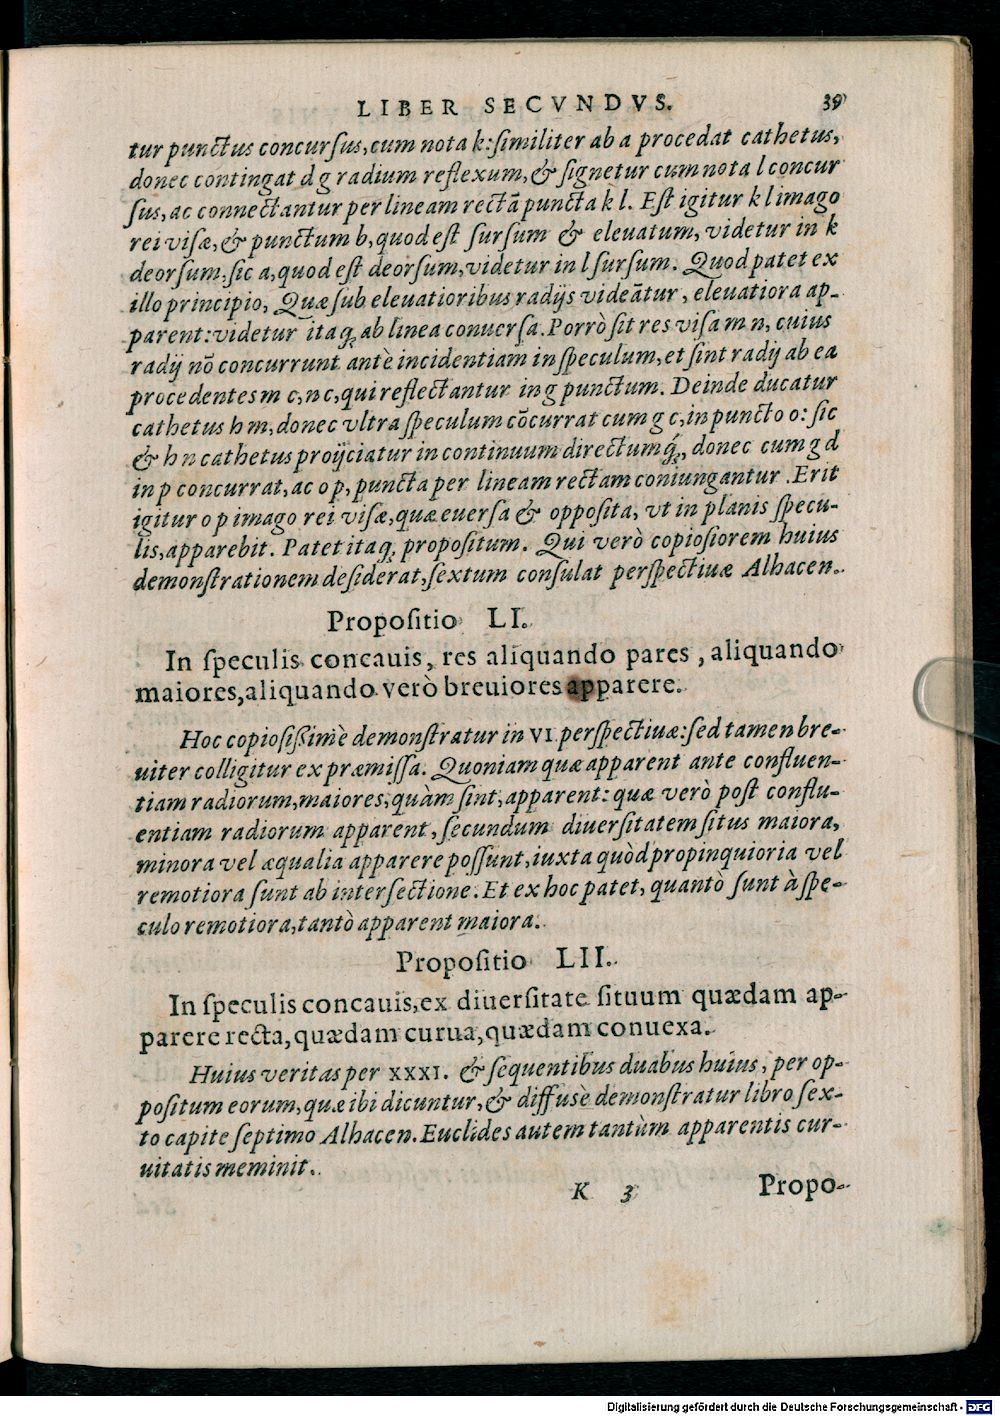 LIBER SECVNDVS. 39
tur punctus concursus, cum nota k: similiter ab a procedat cathetus,
donec contingat d g radium reflexum, & signetur cum nota l concur
sus, ac connectantur per lineam rectā puncta k l. Est igitur k l imago
rei visæ, & punctum b, quod est sursum & eleuatum, videtur in k
deorsum: sic a, quod est deorsum, videtur in l sursum. Quod patet ex
illo principio, Quæ sub eleuatioribus radijs videātur, eleuatiora ap-
parent: videtur itaq; ab linea conuersa. Porrò sit res visa m n, cuius
radij nō concurrunt antè incidentiam in speculum, et sint radij ab ea
procedentes m c, n c, qui reflectantur in g punctum. Deinde ducatur
cathetus h m, donec vltra speculum cōcurrat cum g c, in puncto o: sic
& h n cathetus proijciatur in continuum directumq́;, donec cum g d
in p concurrat, ac o p, puncta per lineam rectam coniungantur. Erit
igitur o p imago rei visæ, quæ euersa & opposita, vt in planis specu-
lis, apparebit. Patet itaq; propositum. Qui verò copiosiorem huius
demonstrationem desiderat, sextum consulat perspectiuæ Alhacen.
Propositio LI.
In speculis concauis, res aliquando pares, aliquando
maiores, aliquando verò breuiores apparere.
Hoc copiosissimè demonstratur in VI perspectiuæ: sed tamen bre-
uiter colligitur ex præmissa. Quoniam quæ apparent ante confluen-
tiam radiorum, maiores, quàm sint, apparent: quæ verò post conflu-
entiam radiorum apparent, secundum diuersitatem situs maiora,
minora vel æqualia apparere possunt, iuxta quòd propinquioria vel
remotiora sunt ab intersectione. Et ex hoc patet, quantò sunt à spe-
culo remotiora, tantò apparent maiora.
Propositio LII.
In speculis concauis, ex diuersitate situum quædam ap-
parere recta, quædam curua, quædam conuexa.
Huius veritas per XXXI. & sequentibus duabus huius, per op-
positum eorum, quæ ibi dicuntur, & diffusè demonstratur libro sex-
to capite septimo Alhacen. Euclides autem tantùm apparentis cur-
uitatis meminit.
K 3 Propo-
Digitalisierung gefördert durch die Deutsche Forschungsgemeinschaft - DFG